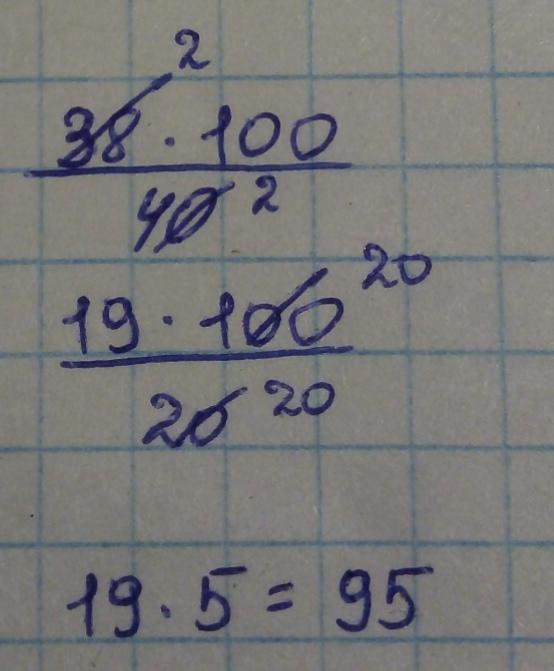 2
38 · 100
40 2
20
19 · 100
20 20
19 · 5 = 95